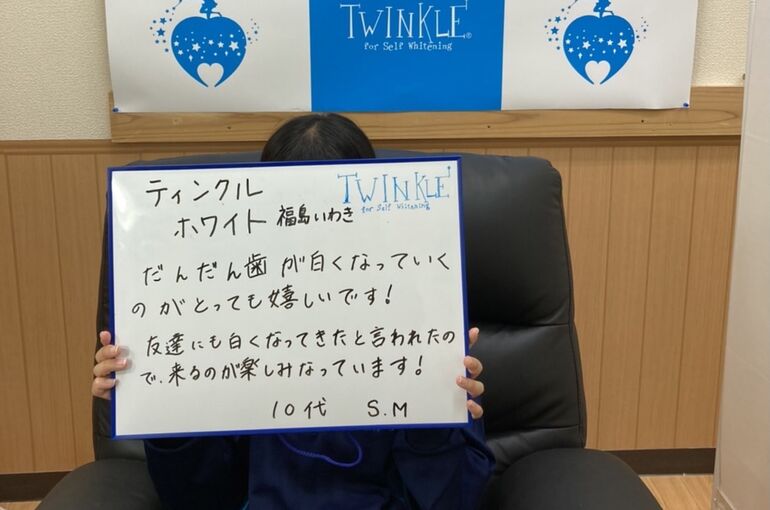 TWINKLE®
for Self Whitening
ティンクル
ホワイト 福島いわき
TWINKLE
for Self Whitening
だんだん歯が白くなっていく
のがとっても嬉しいです!
友達にも白くなってきたと言われたの
で、来るのが楽しみなっています!
10代 S.M